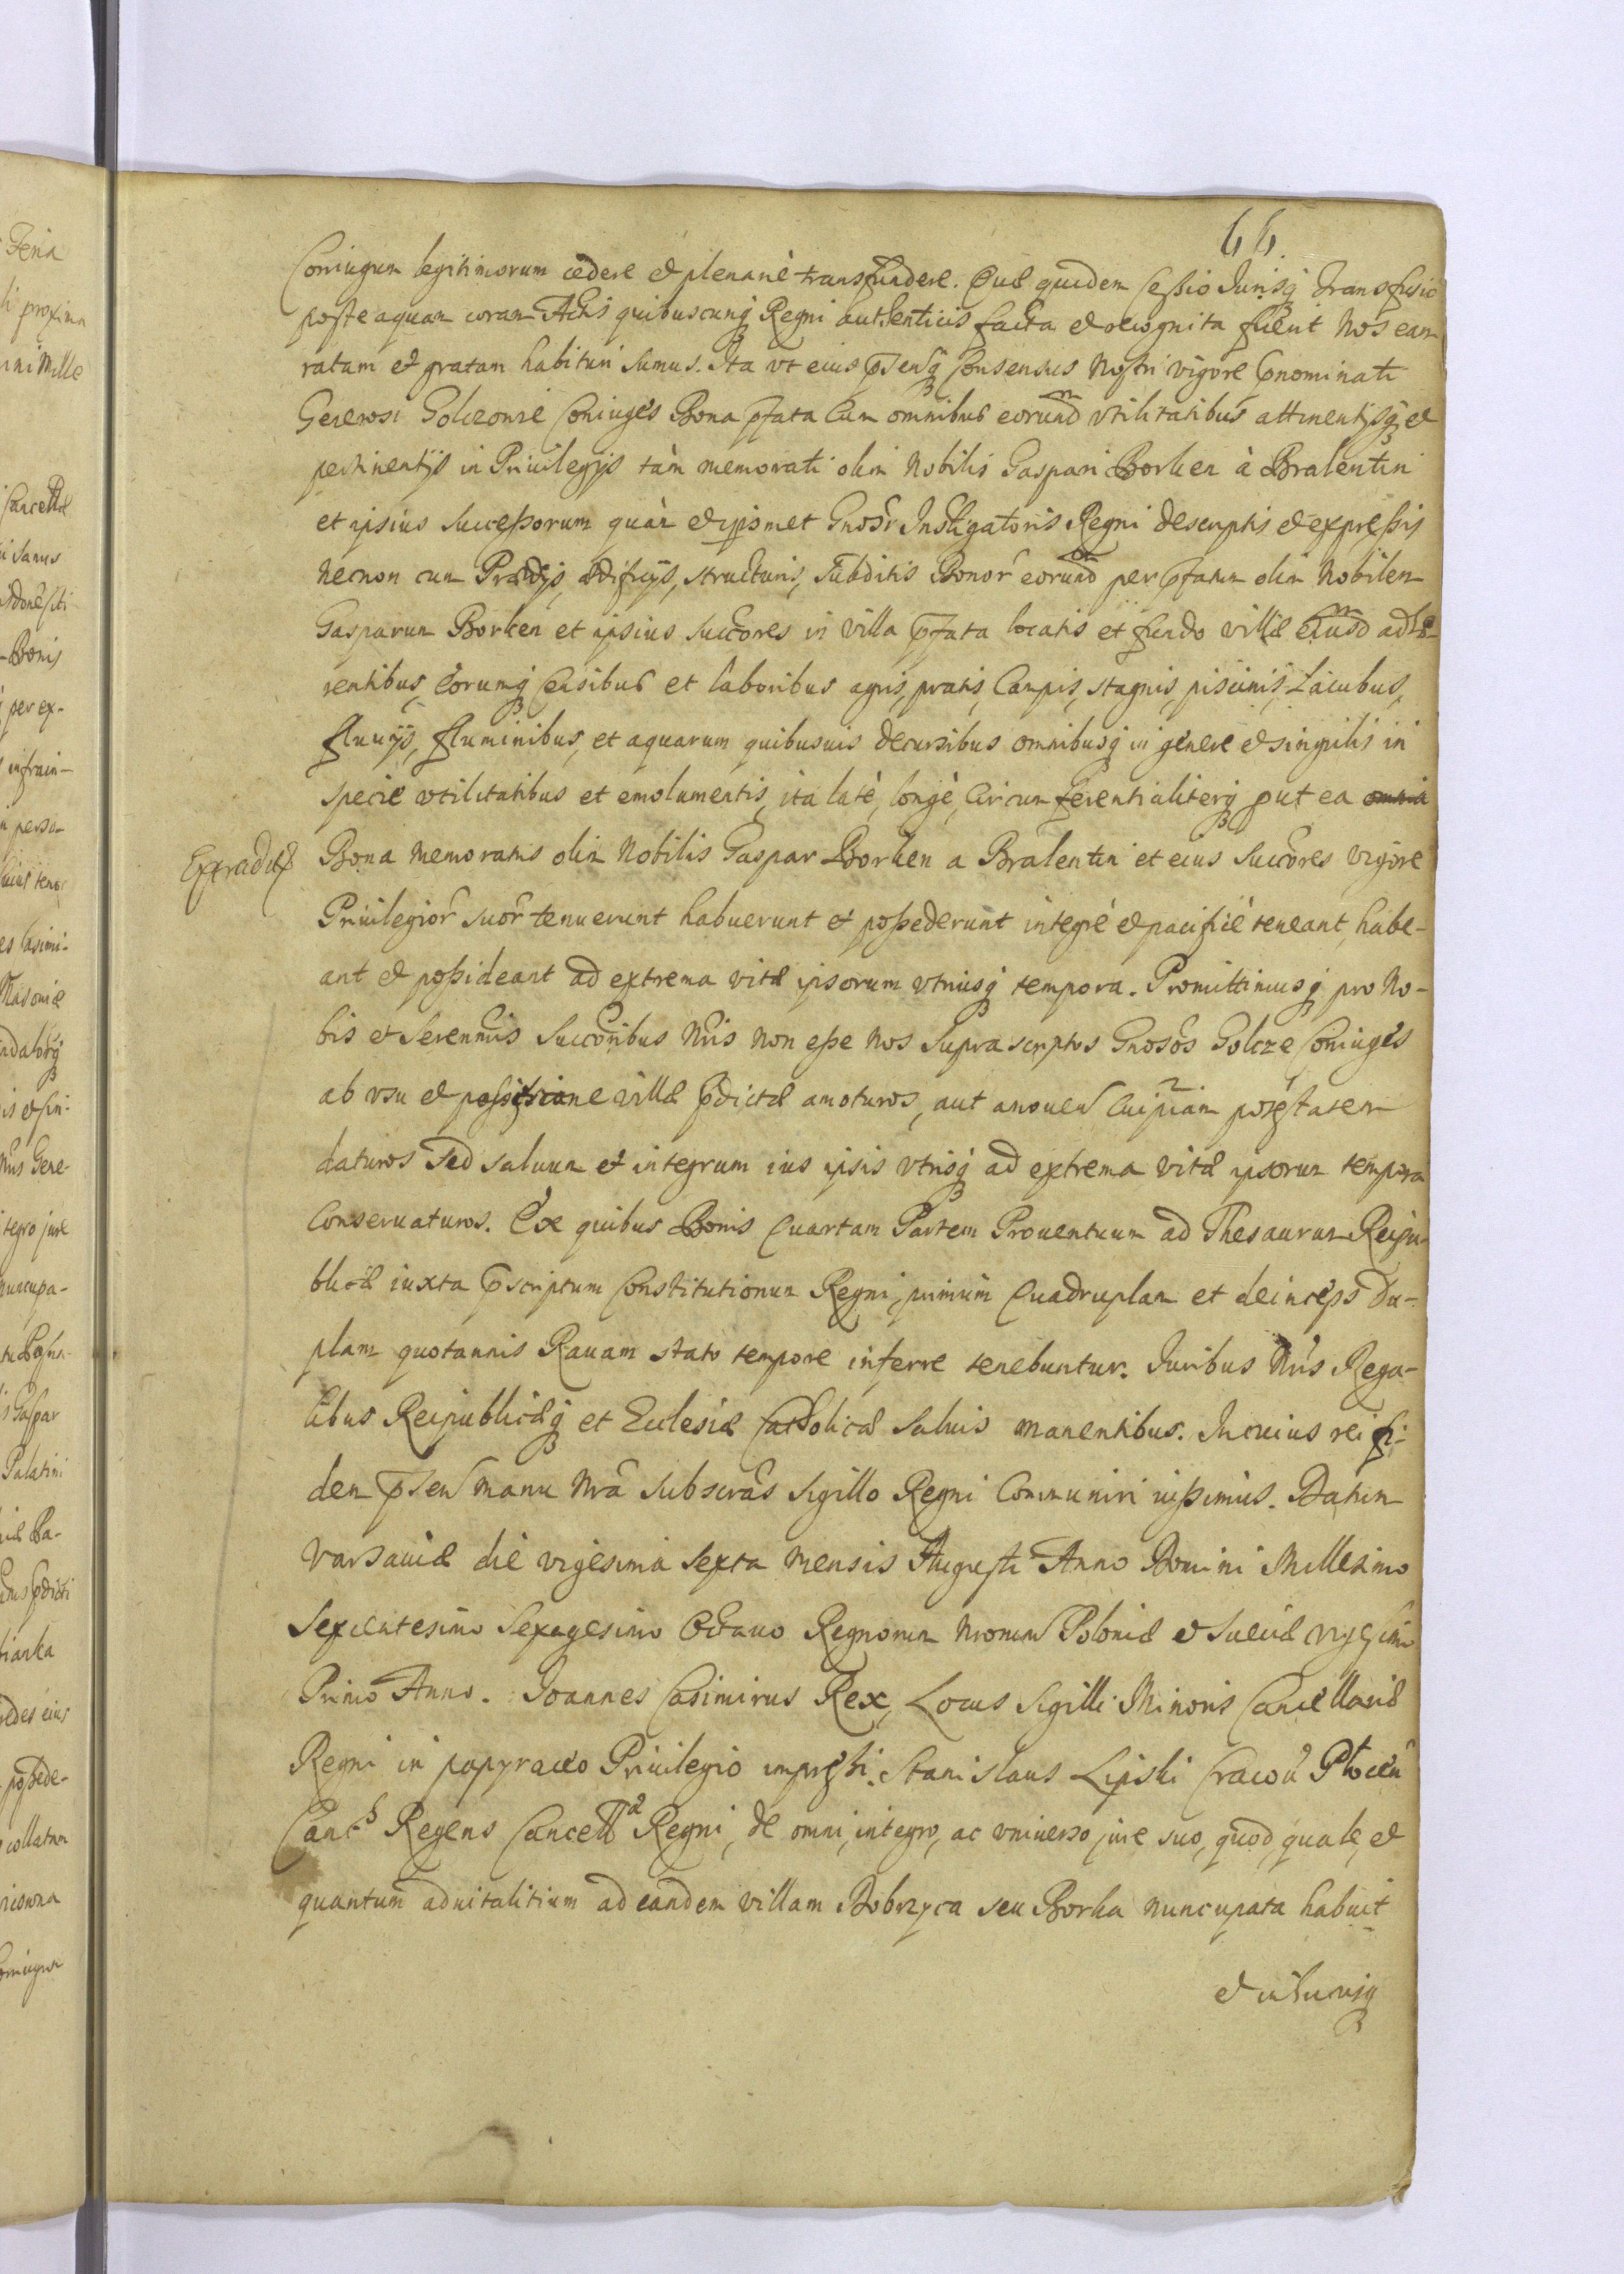 66.
Coniugum legitimorum cedere et plenariè transfundere. Quæ quidem Cessio Iurisq̃ Transfusio
posteaquam coram Actis quibuscunq̃ Regni authenticis facta et recognita fuerit Nos eam
ratam et gratam habituri sumus. Ita vt eius p̃sensq̃ Consensus Nostri vigore p̃nominati
Generosi Golczonie Coniuges Bona p̃fata Cum omnibus eorund̃m vtilitatibus attinentijsq̃ et
pertinentijs in Priuilegijs tàm memorati olim Nobilis Gaspari Borken à Bralentin
et ipsius Successorum quàm et ipsmet Gnosr̃ Instigatoris Regni descriptis et expressis
Necnon cum Prædijs, ædificijs, structuris, Subditis Bonor̃ eorund̃m per p̃fatum olim Nobilem
Gasparum Borken et ipsius Succ̃ores in villa p̃fata locatis et fundo villæ eiusd̃m adhæ-
rentibus, Eorumq̃ Censibus et laboribus agris, pratis, Campis, stagnis, piscinis, Lacubus,
fluuijs, fluminibus, et aquarum quibusuis decursibus omnibusq̃ in genere et singulis in
specie vtilitatibus et emolumentis, ita latè, longè, Circumferentialiterq̃ put ea omnia
Extradit̃
Bona memoratus olim Nobilis Gaspar Borken a Bralentin et eius Succ̃ores vigore
Priuilegior̃ suor̃ tenuerunt habuerunt et possederunt integrè et pacificè teneant, habe-
ant et possideant ad extrema vitæ ipsorum vtriusq̃ tempora. Promittimusq̃ pro No-
bis et Serenm̃is Succ̃oribus Nr̃is Non esse Nos Suprascriptos Gnosõs Golcze Coniuges
ab vsu et possessione villæ p̃dictæ amoturos, aut amouen̄ Cuipiam potestatem
daturos Sed saluum et integrum ius ipsis vtrisq̃ ad extrema vitæ ipsorum tempora
Conseruaturos. Ex quibus Bonis Quartam Partem Prouentuum ad Thesaurum Reipu-
blicæ iuxta p̃scriptum Constitutionum Regni, primum Quadruplam et deinceps Du-
plam quotannis Rauam stato tempore inferre tenebuntur. Iuribus Nr̃is Rega-
libus Reipublicæq̃ et Ecclesiæ Catholicæ Saluis manentibus. In cuius rei fi-
dem p̃sen̄ manu Nrã Subscrãs Sigillo Regni Communiri iussimus. Datum
Varsauiæ die vigesima Sexta mensis Augusti Anno Domini Millesimo
Sexcentesimo Sexagesimo Octauo Regnorum Nrorum Poloniæ et Sueciæ vigesimo
Primo Anno. Ioannes Casimirus Rex, Locus Sigilli Minoris Cancellariæ
Regni in papyraceo Priuilegio impressi. Stanislaus Lipski Cracoũ Plocen̄
Cancs Regens Cancellæ Regni, de omni, integro, ac vniuerso jure suo, quod, quale, et
quantum aduitalitium ad eandem villam Dobrzyca seu Borka nuncupata habuit